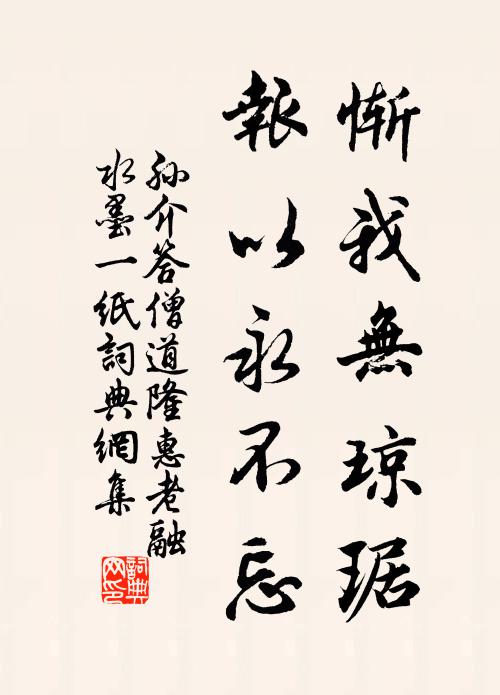 慚我無瓊琚
報以永不忘
孫介答僧道隆惠老融
水墨一紙詞典網集
詞典
网印